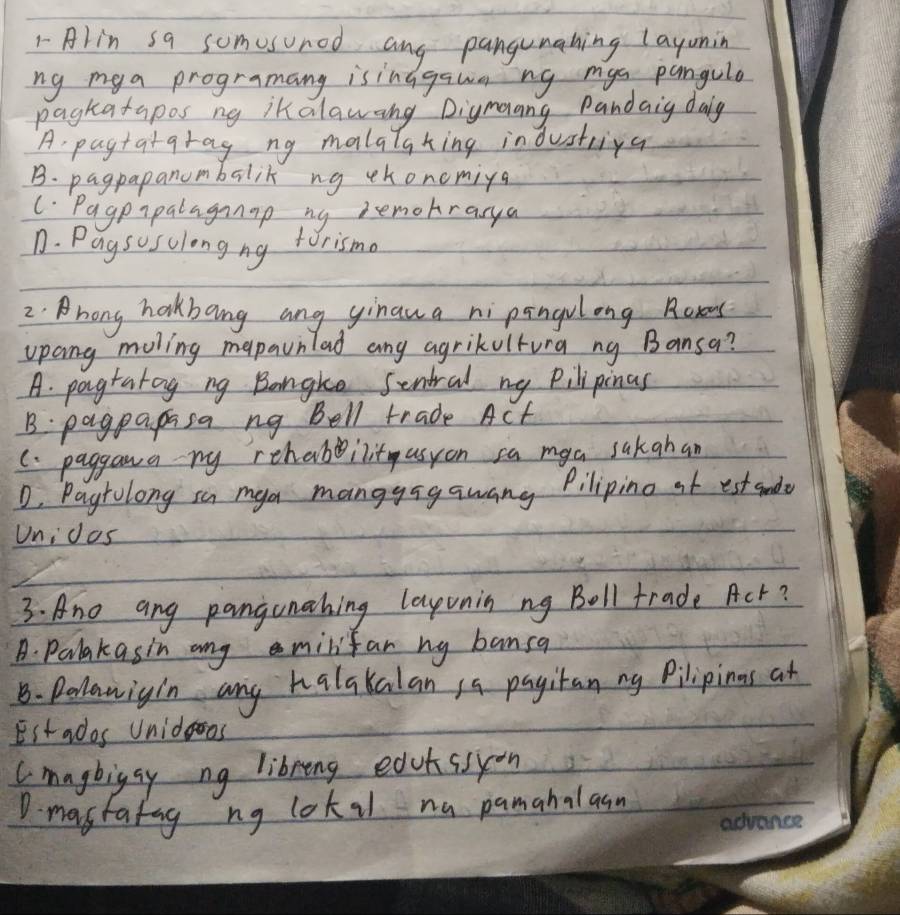 1- Alin sa sumusunod ang pangunahing layunin
ng mga programang isinagawa ng mga pangulo
pagkatapos ng ikalawang Digmaang Pandaigdaig
A. pagtatatag ng malalaking industriya
B. pagpapanumbalik ng ekonomiya
C. Pagpapalaganap ng demokrasya
D. Pagsusulong ng turismo
2. Anong hakbang ang ginawa ni pangulong Roxas
upang muling mapaunlad ang agrikultura ng Bansa?
A. pagtatag ng Bangko Sentral ng Pilipinas
B. pagpapasa ng Bell trade Act
C. paggawa ng rehabilitasyon sa mga sakahan
D. Pagtulong sa mga manggagawang Pilipino at estando
Unidos
3. Ano ang pangunahing layunin ng Bell trade Act?
A. Palakasin ang militar ng bansa
B. Palawigin ang kalakalan sa pagitan ng Pilipinas at
Estados Unidos
C. magbigay ng libreng edukasyon
D. magtatag ng lokal na pamahalaan
advance